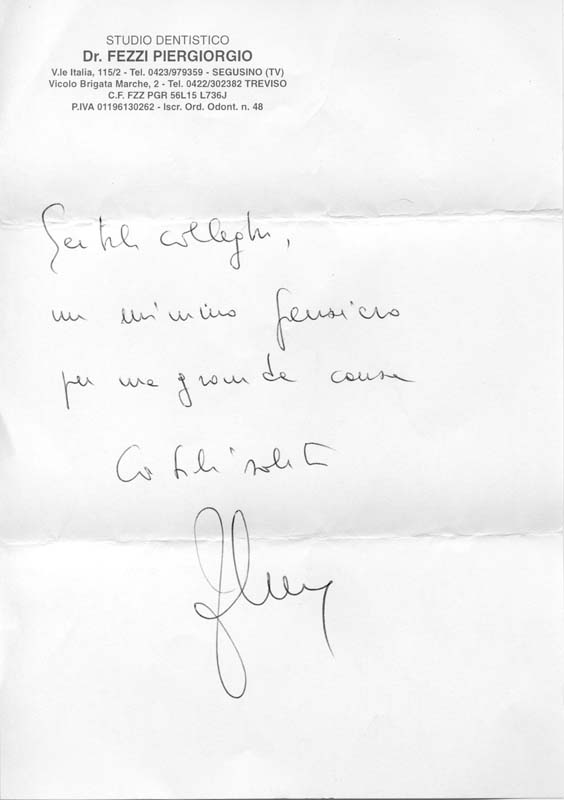 STUDIO DENTISTICO
Dr. FEZZI PIERGIORGIO
V.le Italia, 115/2 - Tel. 0423/979359 - SEGUSINO (TV)
Vicolo Brigata Marche, 2 - Tel. 0422/302382 TREVISO
C.F. FZZ PGR 56L15 L736J
P.IVA 01196130262 - Iscr. Ord. Odont. n. 48
Gentili colleghi,
un minimo pensiero
per una grande causa
Cordiali saluti